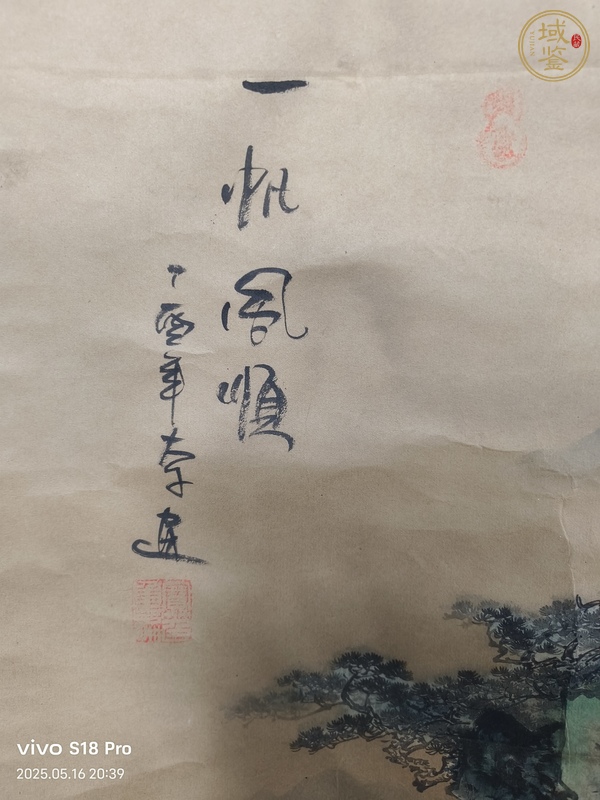 域鑒
一帆風順
丁酉年李建
vivo S18 Pro
2025.05.16 20:39